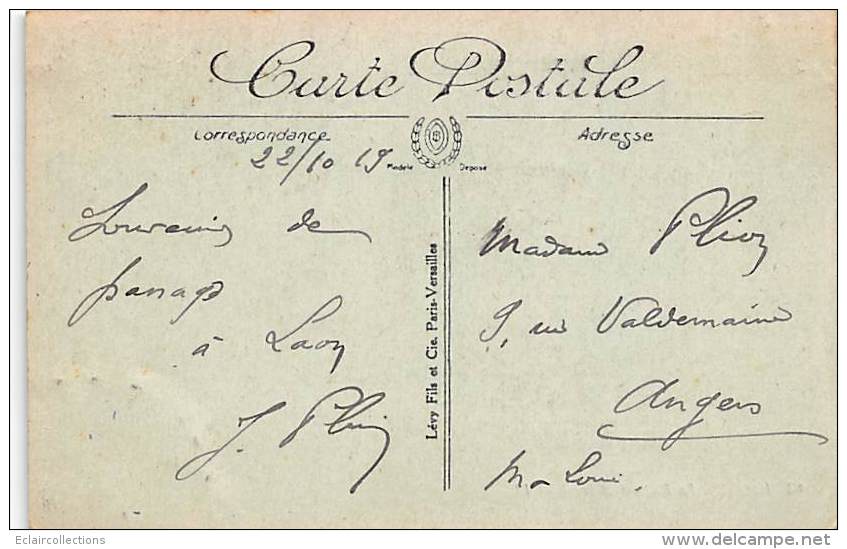 Carte Postale
Correspondance
Adresse
Modèle Déposé
22/10 19
Souvenir de
passage
à Laon
J. Plion
Lévy Fils et Cie. Paris-Versailles
Madame Plion
9, rue Valdemaine
Angers
M-Loire
Eclaircollections
www.delcampe.net